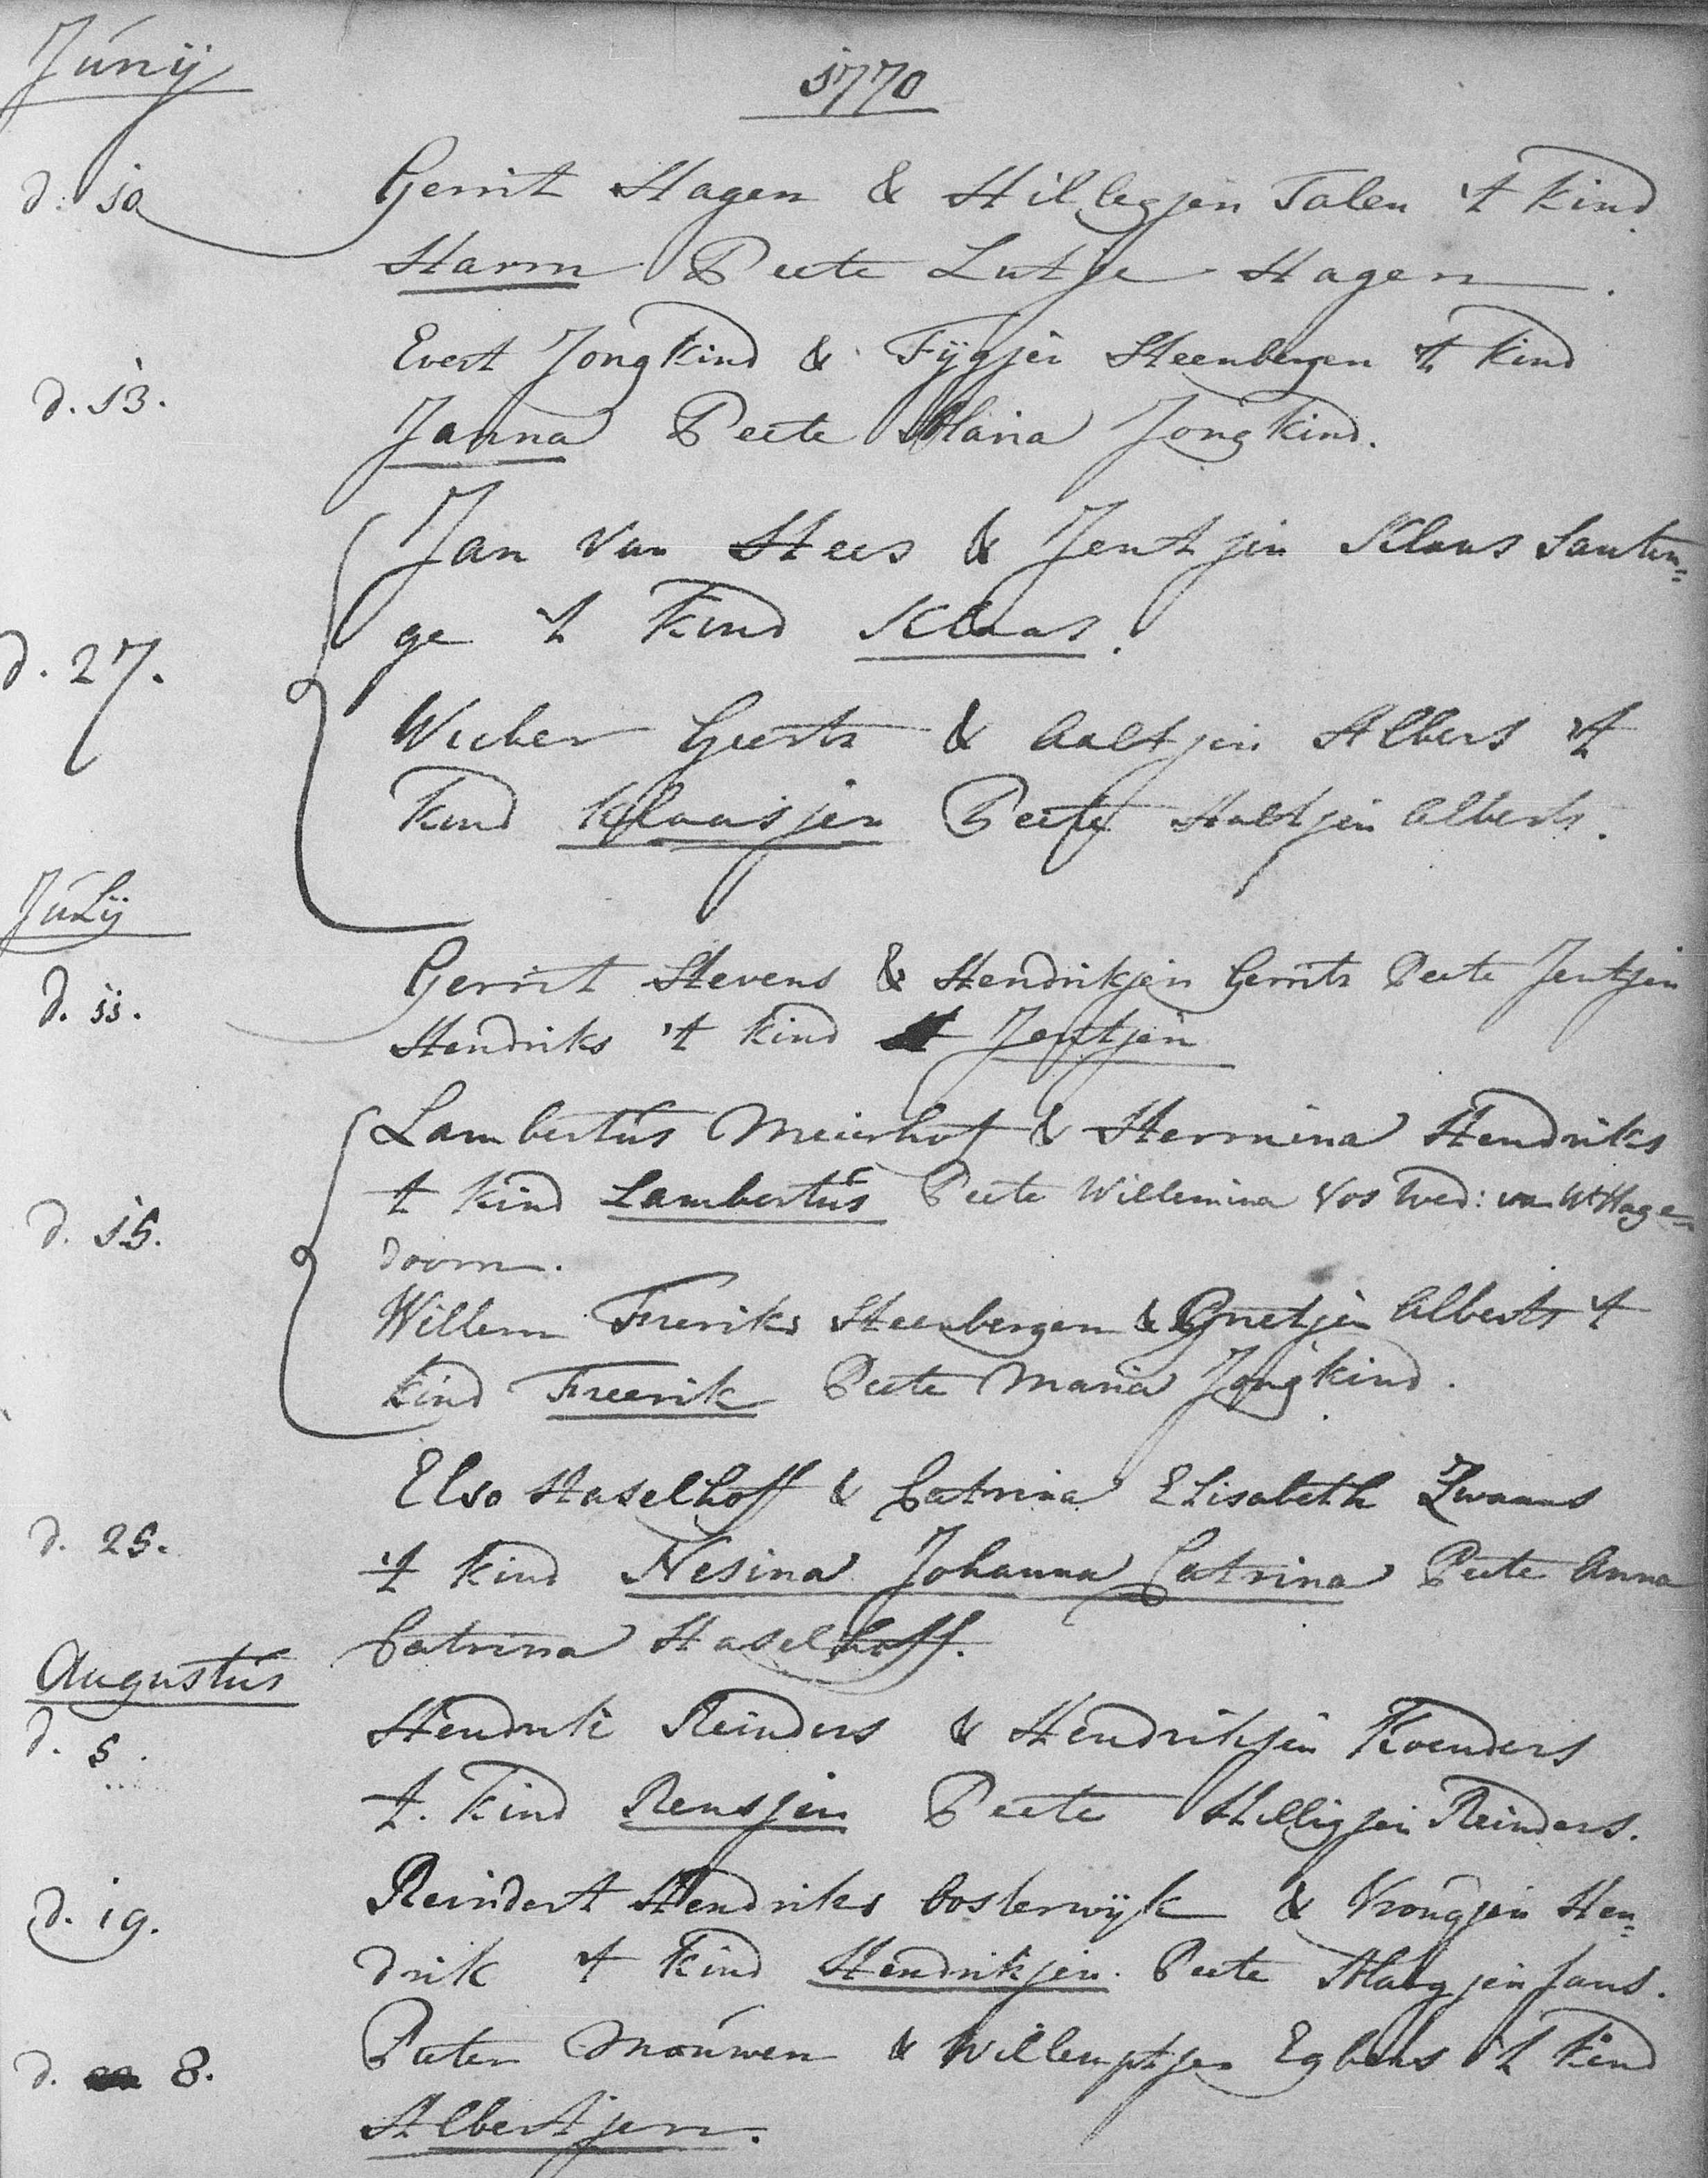 Junij
1770
d. 10 Gerrit Hagen & Hilligjen Talen 't kind
Harm Peete Lutje Hagen.
Evert Jongkind & Fijgjen Steenbergen 't kind
d. 13. Janna Peete Maria Jongkind.
Jan van Hees & Jentjen Klaas Santin=
ge 't kind Klaas.
d. 27.
Wicher Geerts & Aaltjen Albers 't
kind Klaasjen Peete Aaltjen Alberts.
Julij
d. 11. Gerrit Stevens & Hendrikjen Gerrits Peete Jentjen
Hendriks 't kind Jentjen
Lambertus Meierhof & Hermina Hendriks
't kind Lambertus Peete Willemina Vos Wed: van W: Hage=
d. 15. doorn.
Willem Freriks Steenbergen & Grietjen Alberts 't
kind Freerik Peete Maria Jongkind.
Elso Haselhoff & Catrina Elisabeth Zwaans
d. 25. 't kind Nesina Johanna Catrina Peete Anna
Catrina Haselhoff.
Augustus
d. 5. Hendrik Reinders & Hendrikjen Koenders
't. kind Rensjen Peete Hilligjen Reinders.
d. 19. Reindert Hendriks Oosterwijk & Vrougjen Hen=
drik 't kind Hendrikjen. Peete Margjen Jans.
d. 8. Peter Mouwen & Willemptjen Egberts 't kind
Albertjen.